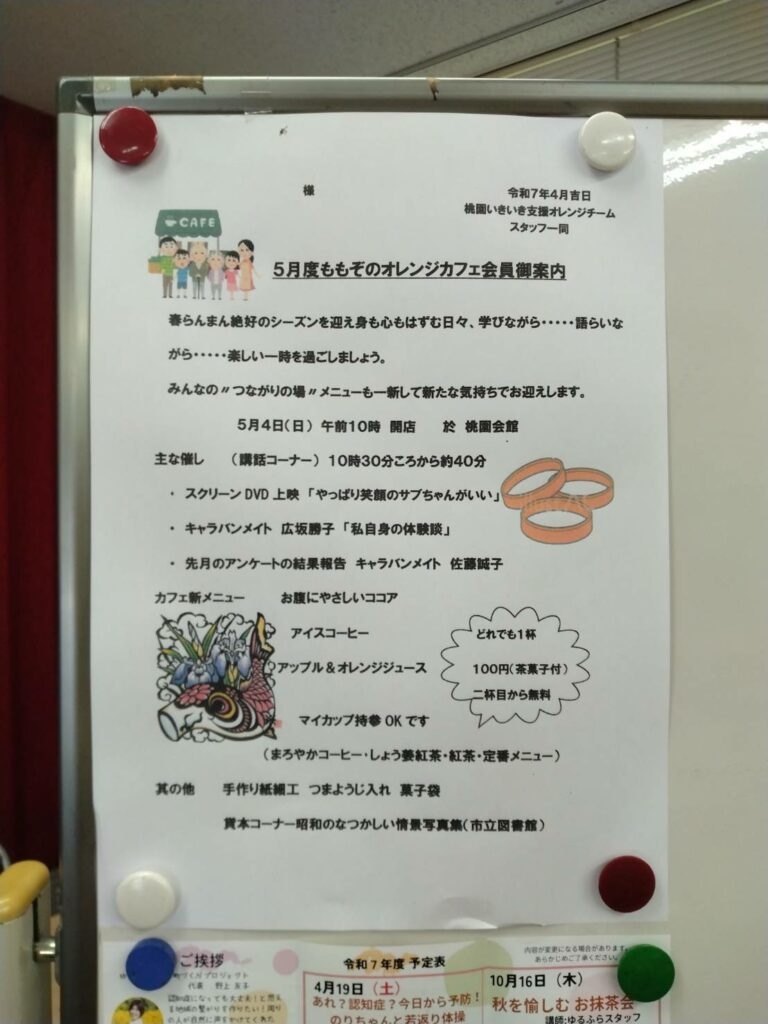 様
令和7年4月吉日
桃園いきいき支援オレンジチーム
スタッフ一同
CAFE
5月度ももぞのオレンジカフェ会員御案内
春らんまん絶好のシーズンを迎え身も心もはずむ日々、学びながら・・・・・語らいな
がら・・・・・楽しい一時を過ごしましょう。
みんなの〃つながりの場〃メニューも一新して新たな気持ちでお迎えします。
5月4日(日) 午前10時 開店 於 桃園会館
主な催し (講話コーナー) 10時30分ころから約40分
・ スクリーンDVD上映「やっぱり笑顔のサブちゃんがいい」
・ キャラバンメイト 広坂勝子「私自身の体験談」
・ 先月のアンケートの結果報告 キャラバンメイト 佐藤誠子
カフェ新メニュー お腹にやさしいココア
アイスコーヒー
アップル&オレンジジュース
マイカップ持参OKです
どれでも1杯
100円(茶菓子付)
二杯目から無料
(まろやかコーヒー・しょう姜紅茶・紅茶・定番メニュー)
其の他 手作り紙細工 つまようじ入れ 菓子袋
貸本コーナー昭和のなつかしい情景写真集(市立図書館)
ご挨拶
プロジェクト
代表 野上 友子
認知症になっても大丈夫!と思え
る地域の繋がりを作りたい!周り
の人が自然に声をかけてくれ
令和7年度 予定表
内容が変更になる場合があります。
あらかじめご了承ください。
4月19日(土)
あれ?認知症?今日から予防!
のりちゃんと若返り体操
10月16日(木)
秋を愉しむ お抹茶会
講師:ゆるふらスタッフ